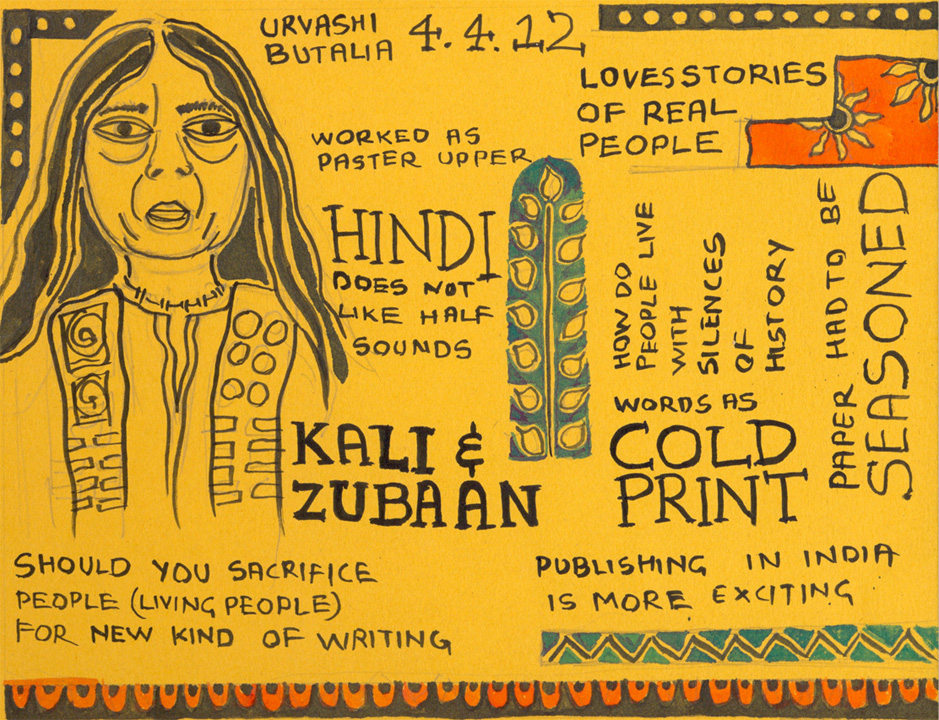 URVASHI
BUTALIA
4.4.12
LOVES STORIES
OF REAL
PEOPLE
WORKED AS
PASTER UPPER
HINDI
DOES NOT
LIKE HALF
SOUNDS
HOW DO
PEOPLE LIVE
WITH
SILENCES
OF
HISTORY
PAPER HAD TO BE
SEASONED
KALI &
ZUBAAN
WORDS AS
COLD
PRINT
SHOULD YOU SACRIFICE
PEOPLE (LIVING PEOPLE)
FOR NEW KIND OF WRITING
PUBLISHING IN INDIA
IS MORE EXCITING